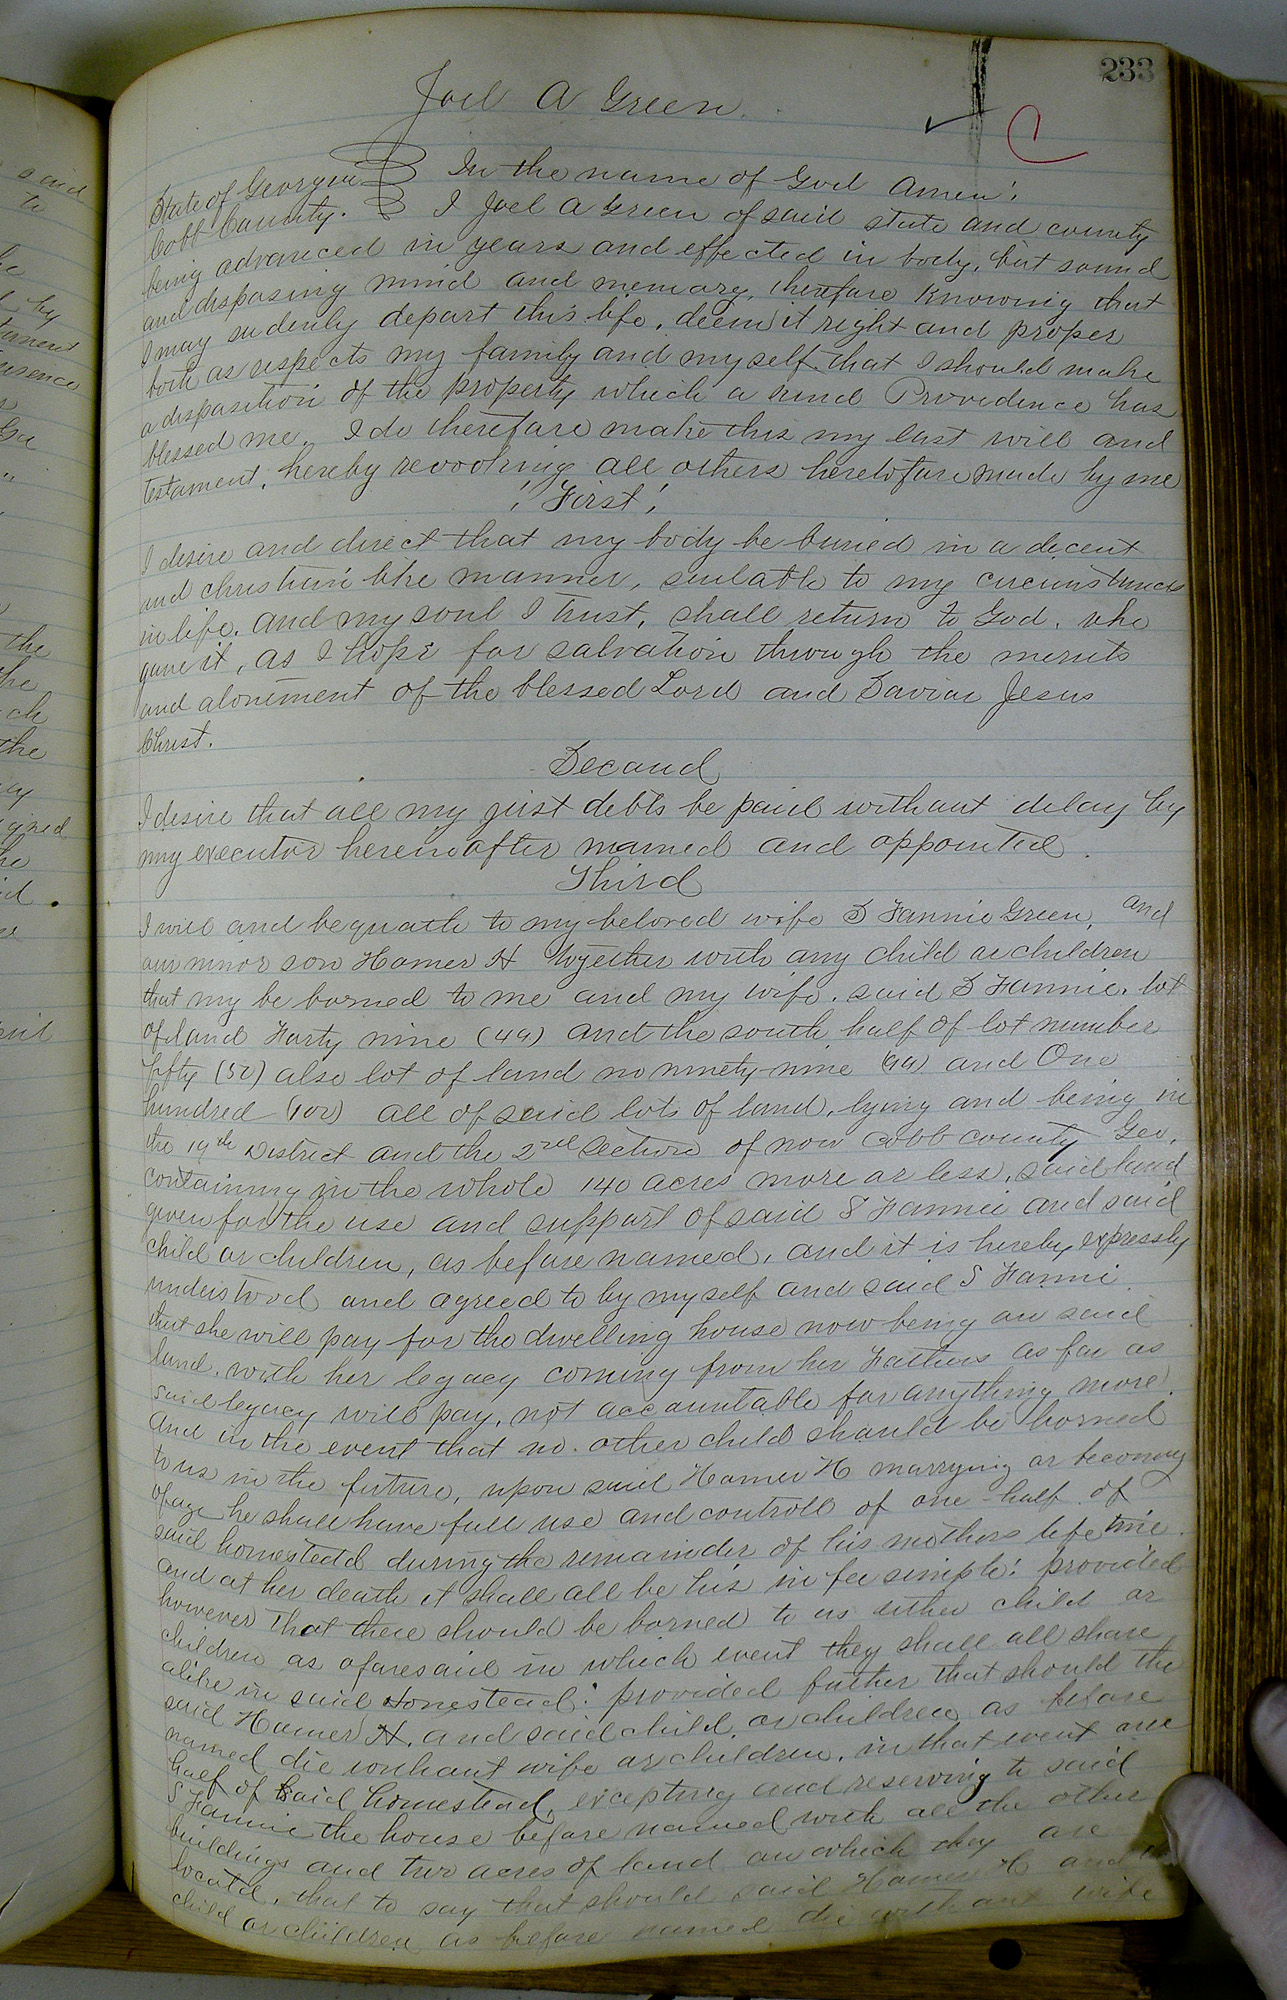 233
Joel A Green.
C
State of Georgia In the name of God Amen!
Cobb County. I Joel A Green of said state and county
being advanced in years and effected in body, but sound
and disposing mind and memory, therefore Knowing that
I may sudenly depart this life, deem it right and proper
both as respects my family and myself that I should make
a disposition of the property which a kind Providence has
blessed me. I do therefore make this my last will and
testament, hereby revooking all others heretofore made by me
"First"
I desire and direct that my body be buried in a decent
and christian like manner, suitable to my circumstances
in life. and my soul I trust, shall return to God, who
gave it, as I hope for salvation through the merits
and atonement of the blessed Lord and Savior Jesus
Christ.
Second
I desire that all my just debts be paid without delay by
my executor hereinafter named and appointed.
Third
I will and bequath to my beloved wife S Fannie Green, and
our minor son Homer H together with any child or children
that my be borned to me and my wife, said S Fannie, lot
of land Forty nine (49) and the south half of lot number
fifty (50) also lot of land no ninety-nine (99) and One
hundred (100) all of said lots of land, lying and being in
the 19th District and the 2nd Section of now Cobb county Geo,
containing in the whole 140 acres more or less, said land
given for the use and support of said S Fannie and said
child or children, as before named, and it is hereby expressly
understood and agreed to by myself and said S Fanni
that she will pay for the dwelling house now being on said
land, with her legacy coming from her Fathers as far as
said legacy will pay, not accountable for anything more.
And in the event that no other child should be borned
to us in the future, upon said Homer H marrying or becoming
of age he shall have full use and controll of one-half of
said homestedd during the remainder of his mothers life time
and at her death it shall all be his in fee simple: provided
however that there should be borned to us either child or
children as aforesaid in which event they shall all share
alike in said Homestead: provided futher that should the
said Homer H. and said child or children as before
named die without wife or children, in that event one
half of said homestead, excepting and reserving to said
S Fannie the house before named with all the other
buildings and two acres of land on which they are
locatd, that to say that should said Homer H and
child or children as before named die without wife